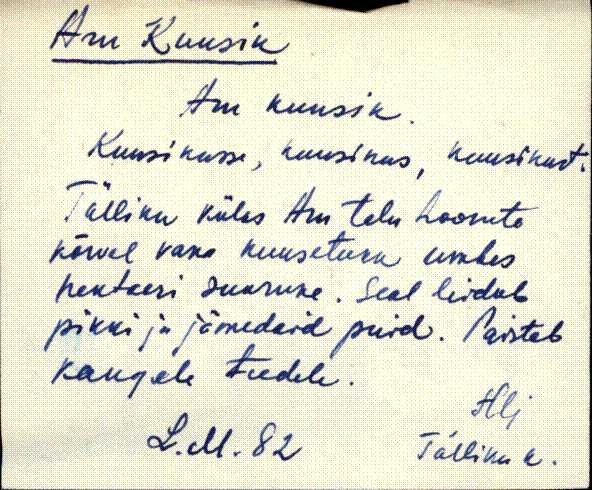 Aru Kuusik
Aru kuusik.
Kuusikusse, kuusikus, kuusikust.
Tälliku külas Aru talu hoonete
kõrval vana kuusetukk umbes
hektaari suurune. Seal leidub
pikki ja jämedaid puid. Paistab
kaugele teedele.
Hlj
L.M. 82
Tälliku k.